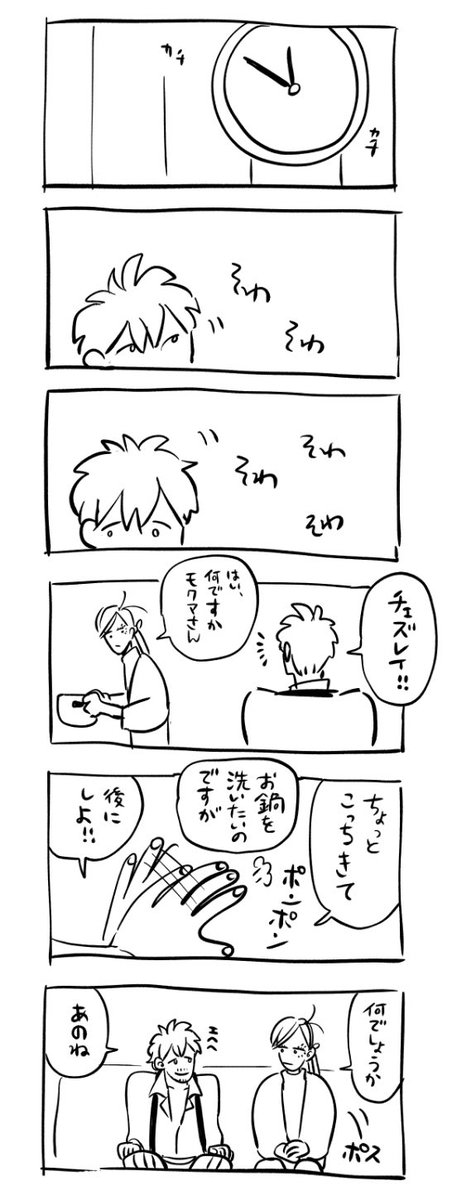 カチ
カチ
そわ
そわ
そわ
そわ
そわ
チェズレイ!!
はい、
何ですか
モクマさん
ちょっと
こっちきて
お鍋を
洗いたいの
ですが
ポンポン
後に
しよ!!
何でしょうか
ポス
あのね